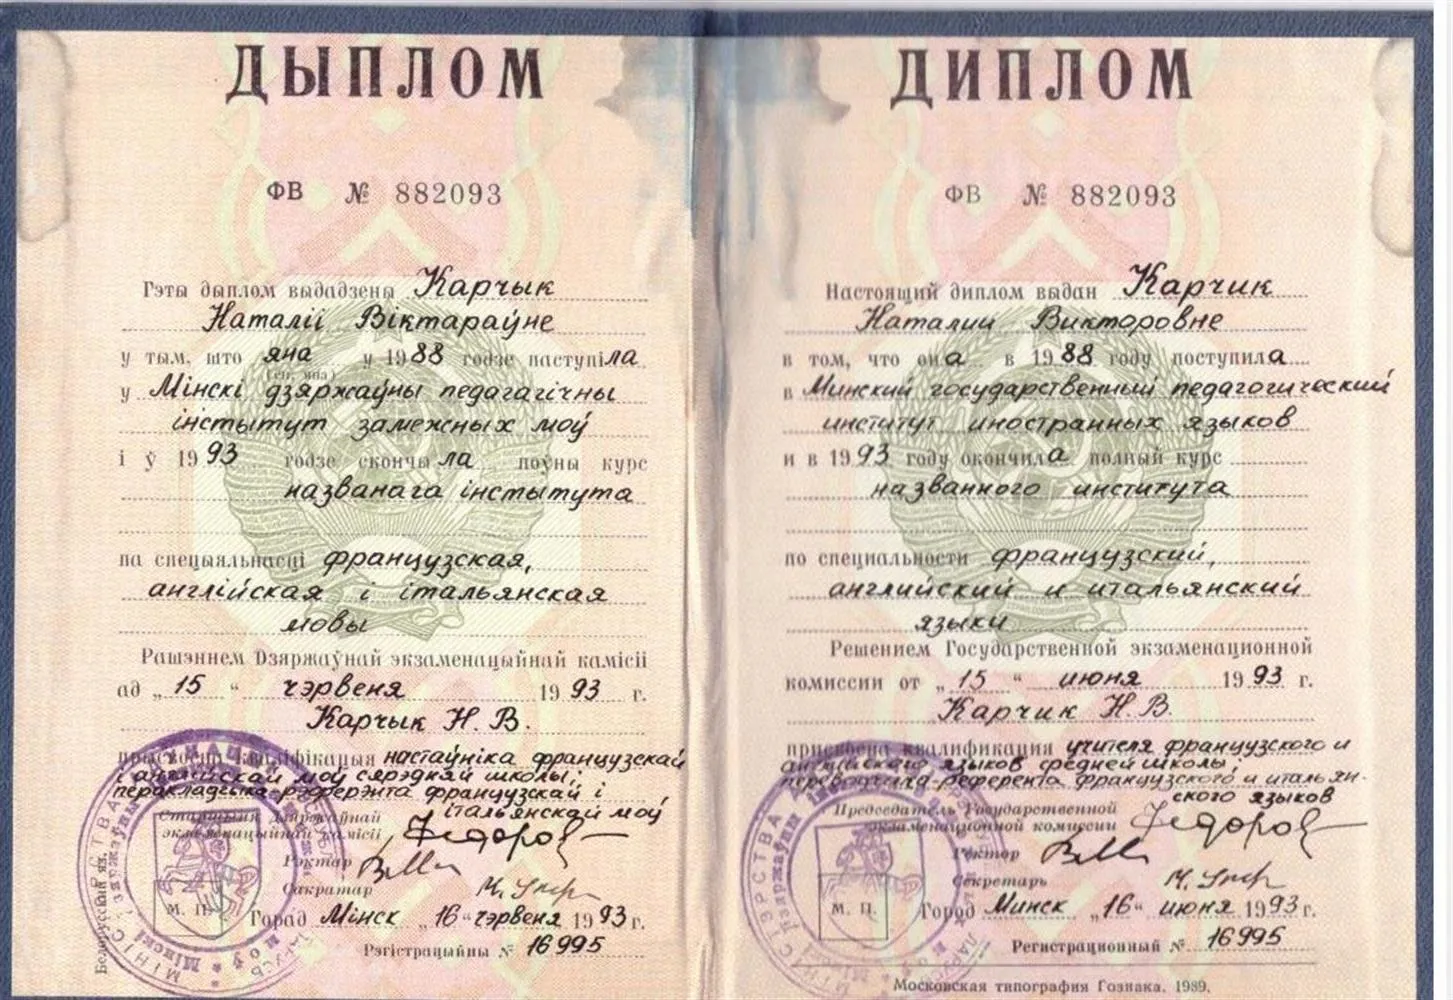 ДЫПЛОМ
ФВ № 882093
Гэты дыплом выдадзены Карчык
Наталіі Віктараўне
у тым, што яна у 1988 годзе наступіла
(ён, яна)
у Мінскі дзяржаўны педагагічны
інстытут замежных моў
і ў 1993 годзе скончыла поўны курс
названага інстытута
па спецыяльнасці французская,
англійская і італьянская
мовы
Рашэннем Дзяржаўнай экзаменацыйнай камісіі
ад „15“ чэрвеня 1993 г.
Карчык Н. В.
прысвоена кваліфікацыя настаўніка французскай
і англійскай моў сярэдняй школы;
перакладчыка-рэферэнта французскай і
італьянскай моў
Старшыня Дзяржаўнай
экзаменацыйнай камісіі
Рэктар
Сакратар
М. П.
Горад Мінск „16“ чэрвеня 1993 г.
Рэгістрацыйны № 16995
Белорусский яз.
ДИПЛОМ
ФВ № 882093
Настоящий диплом выдан Карчик
Наталии Викторовне
в том, что она в 1988 году поступила
в Минский государственный педагогический
институт иностранных языков
и в 1993 году окончила полный курс
названного института
по специальности французский,
английский и итальянский
языки
Решением Государственной экзаменационной
комиссии от „15“ июня 1993 г.
Карчик Н. В.
присвоена квалификация учителя французского и
английского языков средней школы;
переводчика-референта французского и итальян-
ского языков
Председатель Государственной
экзаменационной комиссии
Ректор
Секретарь
М. П.
Город Минск „16“ июня 1993 г.
Регистрационный № 16995
Московская типография Гознака. 1989.